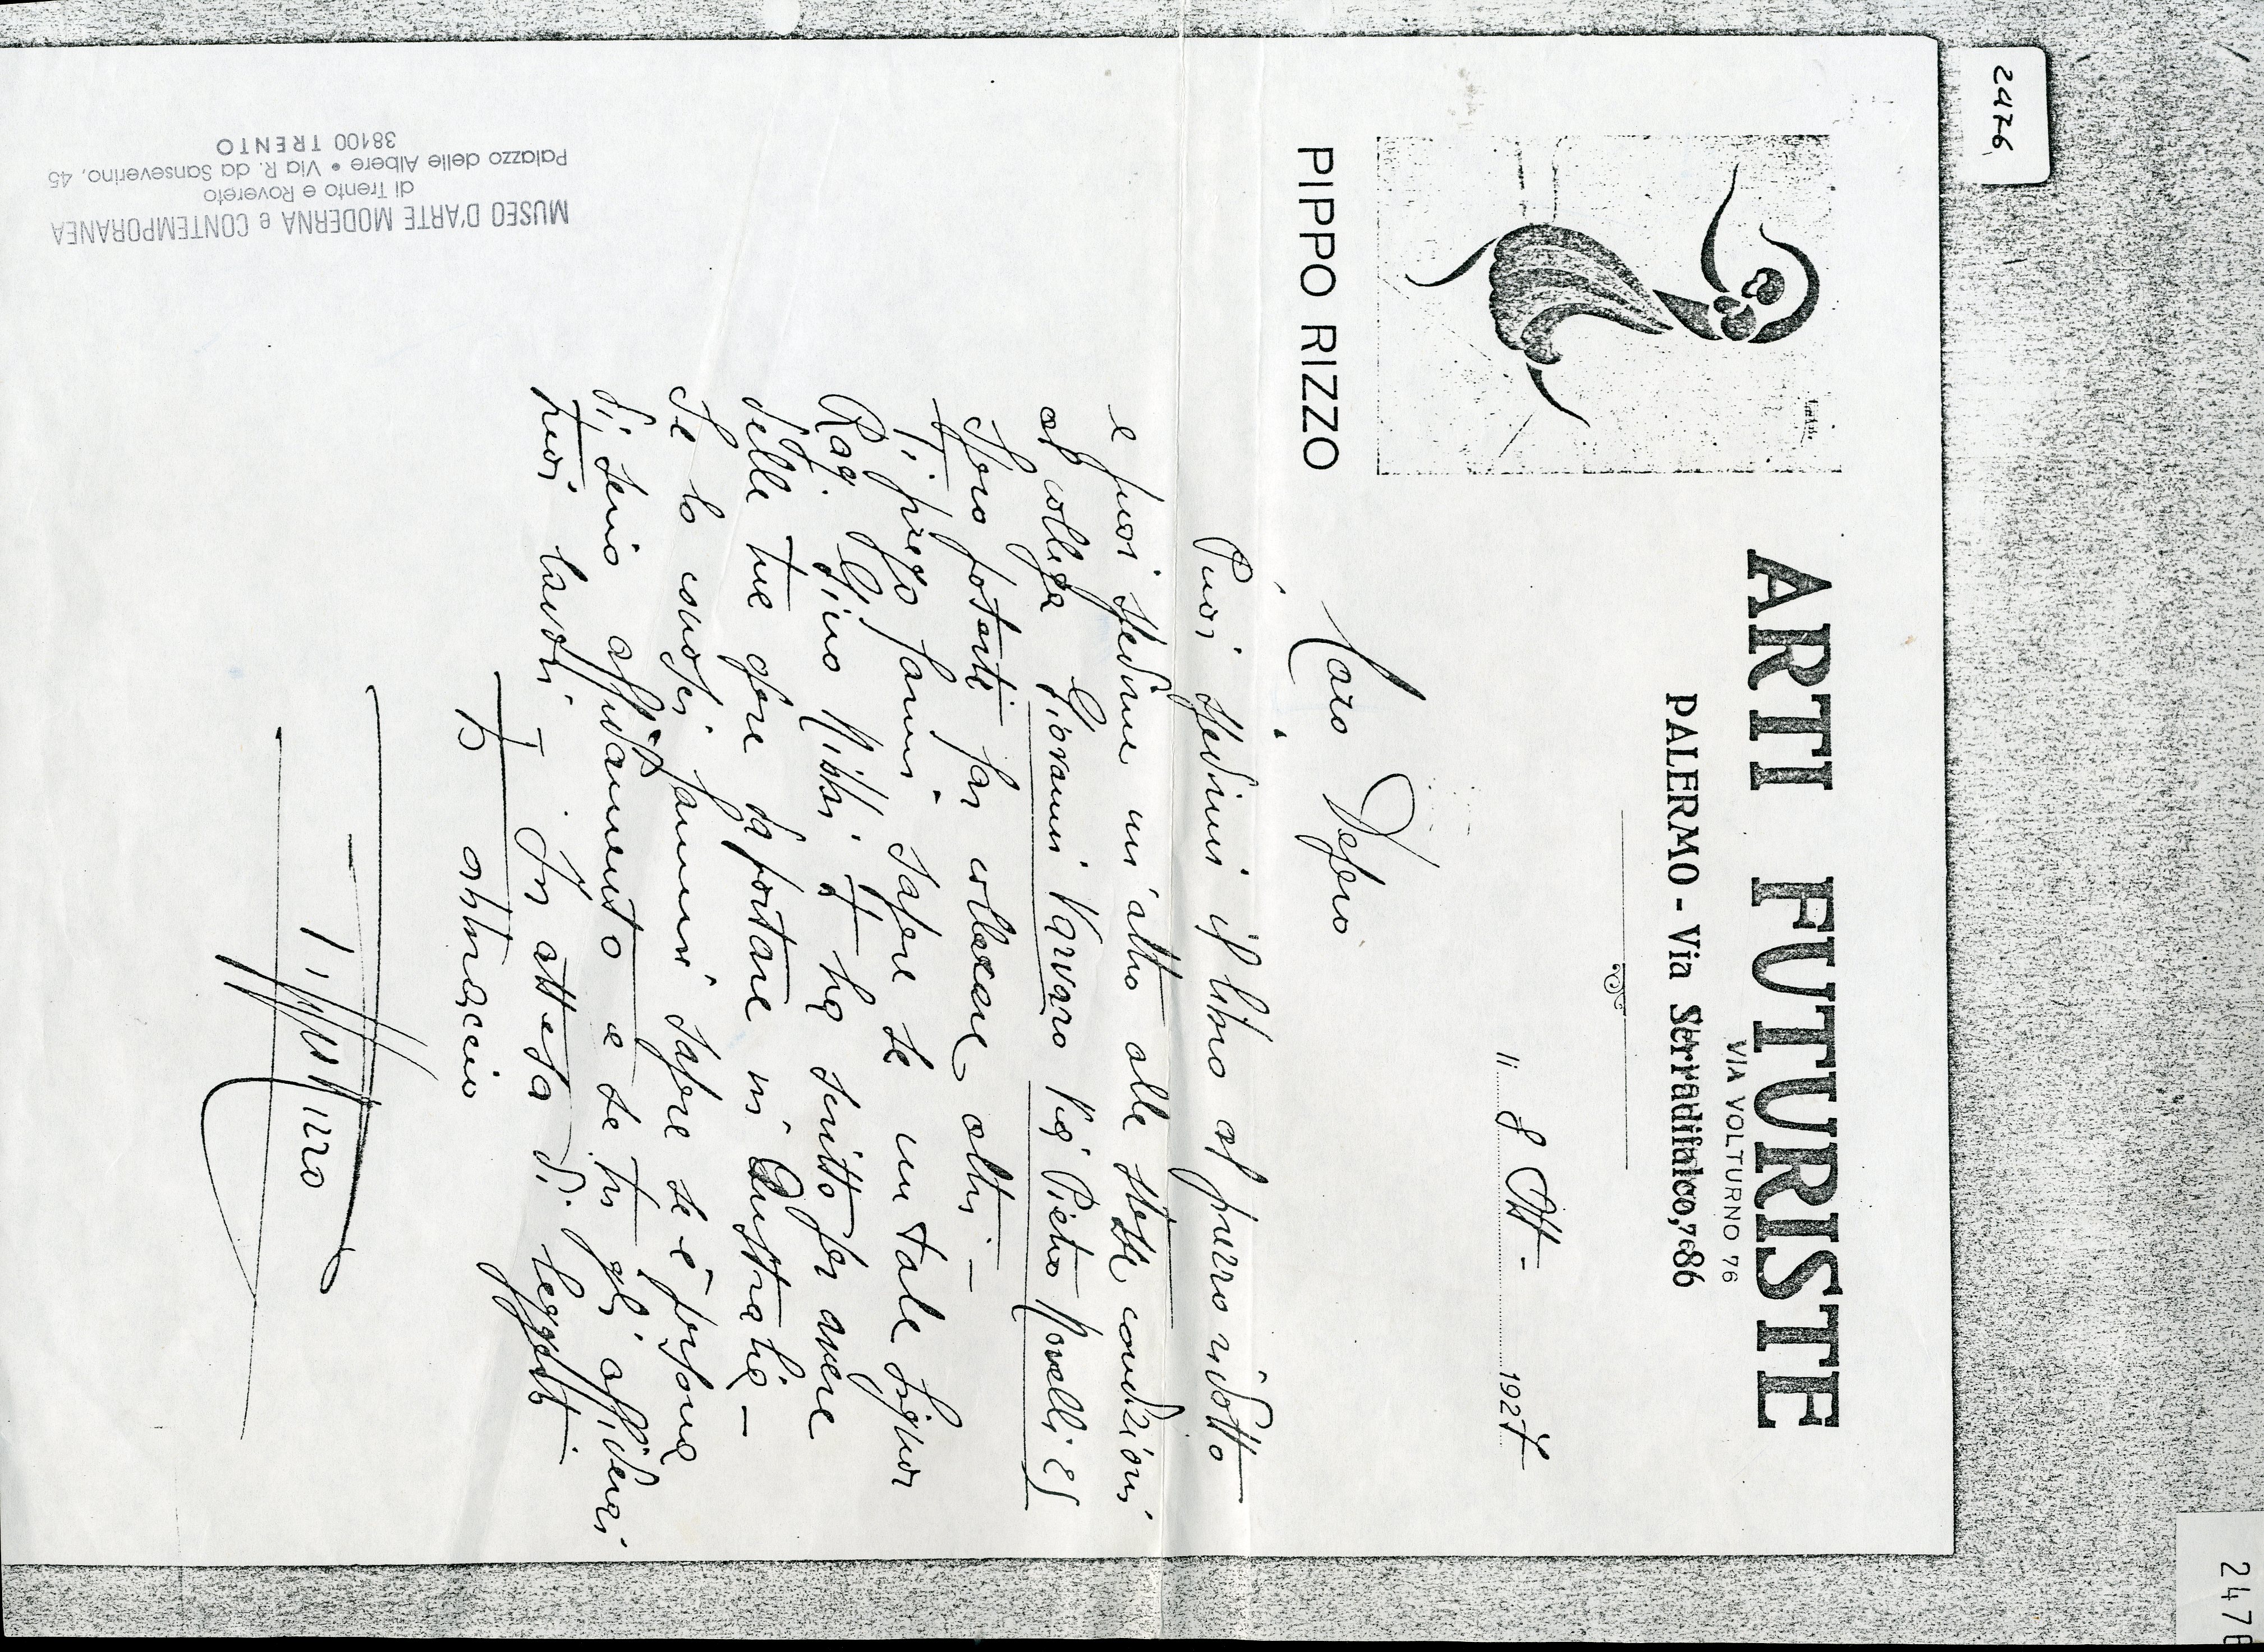 2476
ARTI FUTURISTE
VIA VOLTURNO 76
PALERMO - Via Serradifalco, 86
PIPPO RIZZO
li 8 Ott - 1927
Caro Depero
Puoi spedirmi il libro al prezzo ridotto
e puoi spedirne un altro alle stesse condizioni
al collega Giovanni Varvaro Via Pietro Novelli 25
Spero poterti far collocare altri –
Ti prego farmi sapere se un tale Signor
Rag. Gino Nibbi ti ha scritto per avere
delle tue opere da portare in Australia –
Se lo conosci fammi sapere se è persona
di serio affidamento e se tu gli affiderai
tuoi lavori. In attesa di leggerti
Ti abbraccio
Pippo Rizzo
MUSEO D'ARTE MODERNA e CONTEMPORANEA
di Trento e Rovereto
Palazzo delle Albere • Via R. da Sanseverino, 45
38100 TRENTO